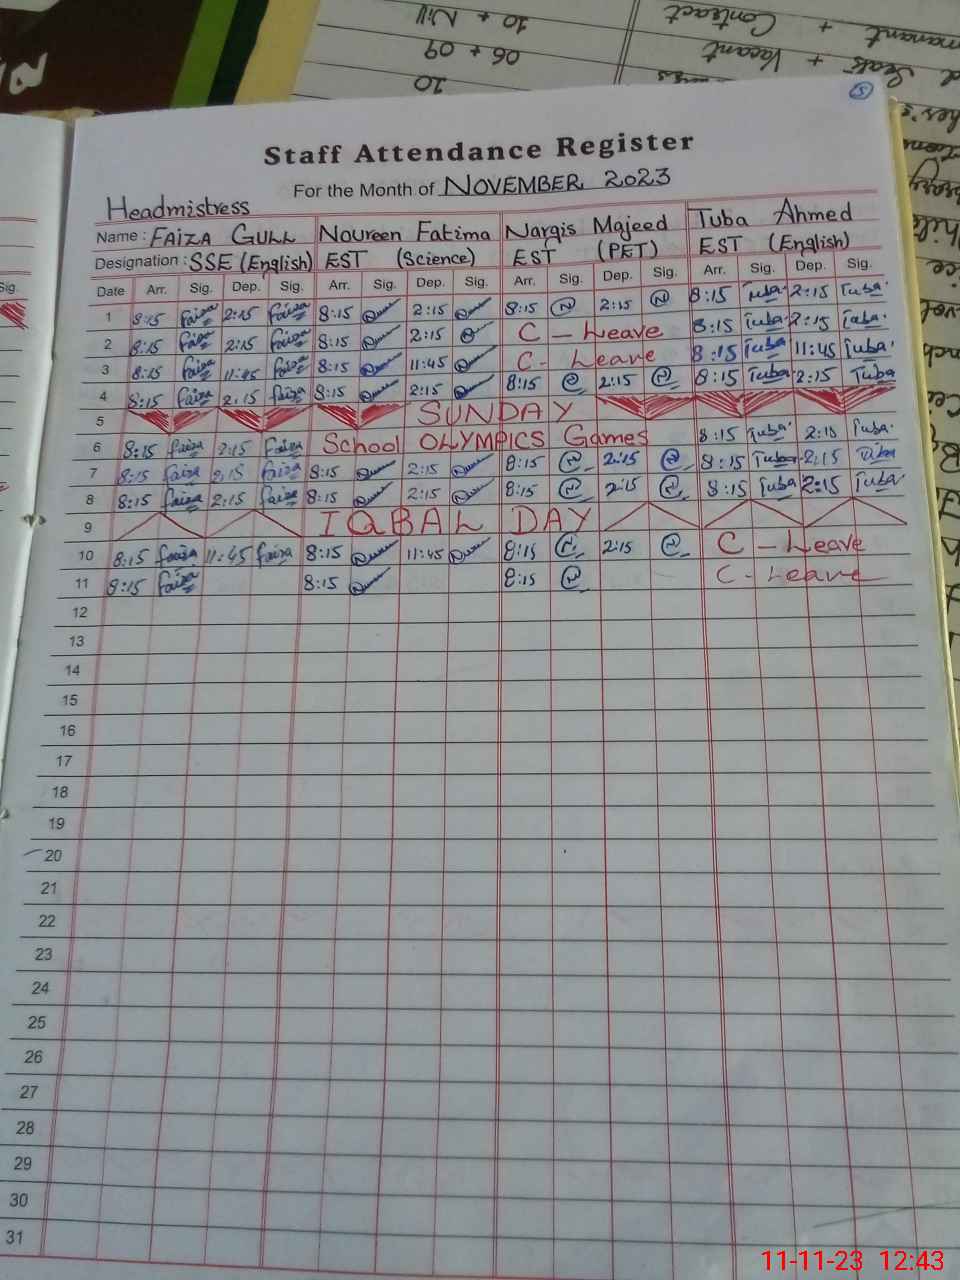 5
Staff Attendance Register
For the Month of NOVEMBER 2023
Headmistress
Name : FAIZA GULL Noureen Fatima Nargis Majeed Tuba Ahmed
Designation : SSE (English) EST (Science) EST (PET) EST (English)
Date Arr. Sig. Dep. Sig. Arr. Sig. Dep. Sig. Arr. Sig. Dep. Sig. Arr. Sig. Dep. Sig.
1 8:15 faiza 2:15 faiza 8:15 2:15 8:15 N 2:15 N 8:15 Tuba 2:15 Tuba
2 8:15 faiza 2:15 faiza 8:15 2:15 C - Leave 8:15 Tuba 2:15 Tuba
3 8:15 faiza 11:45 faiza 8:15 11:45 C - Leave 8:15 Tuba 11:45 Tuba
4 8:15 faiza 2:15 faiza 8:15 2:15 8:15 N 2:15 N 8:15 Tuba 2:15 Tuba
5 SUNDAY
6 8:15 faiza 2:15 faiza School OLYMPICS Games 8:15 Tuba 2:15 Tuba
7 8:15 faiza 2:15 faiza 8:15 2:15 8:15 N 2:15 N 8:15 Tuba 2:15 Tuba
8 8:15 faiza 2:15 faiza 8:15 2:15 8:15 N 2:15 N 8:15 Tuba 2:15 Tuba
9 IQBAL DAY
10 8:15 faiza 11:45 faiza 8:15 11:45 8:15 N 2:15 N C - Leave
11 8:15 faiza 8:15 8:15 N C - Leave
12
13
14
15
16
17
18
19
20
21
22
23
24
25
26
27
28
29
30
31
Sig.
10 + Nill
06 + 09
20
Contract
+ Vacant
11-11-23 12:43